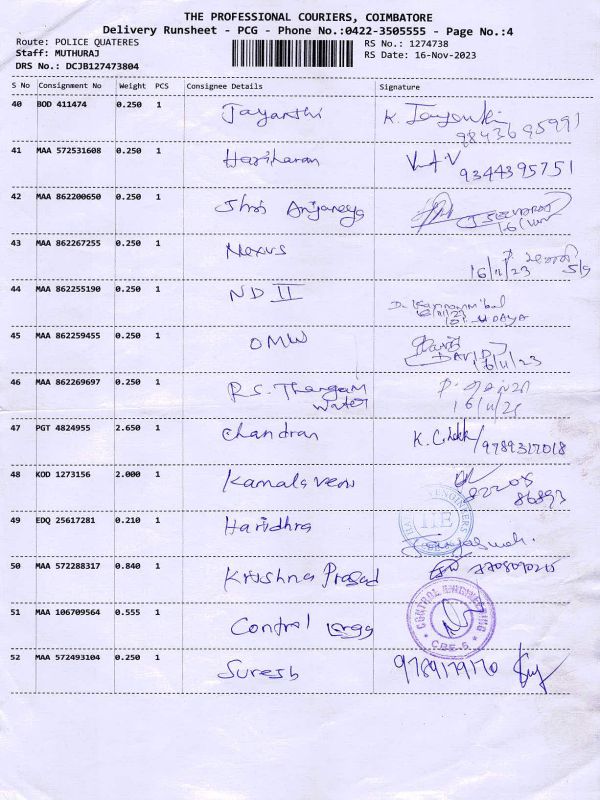 THE PROFESSIONAL COURIERS, COIMBATORE
Delivery Runsheet - PCG - Phone No.:0422-3505555 - Page No.:4
Route: POLICE QUATERES
RS No.: 1274738
Staff: MUTHURAJ
RS Date: 16-Nov-2023
DRS No.: DCJB127473804
S No Consignment No Weight PCS Consignee Details Signature
40 BOD 411474 0.250 1 Jayanthi K.
9843695991
41 MAA 572531608 0.250 1 Hariharan
9344395751
42 MAA 862200650 0.250 1 Shri Anjaneya
43 MAA 862267255 0.250 1 Nexus
16/11/23
44 MAA 862255190 0.250 1 ND II
UDAYA
45 MAA 862259455 0.250 1 OMW
DAVID
16/11/23
46 MAA 862269697 0.250 1 R.S. Thangam
water
47 PGT 4824955 2.650 1 Chandran K. /9789317018
48 KOD 1273156 2.000 1 Kamalaveni
86893
IIE
49 EDQ 25617281 0.210 1 Haridhra
50 MAA 572288317 0.840 1 Krishna Prasad
51 MAA 106709564 0.555 1 Control Engg
CONTROL ENGINEERING
CBE-5
52 MAA 572493104 0.250 1 Suresh 9789179170